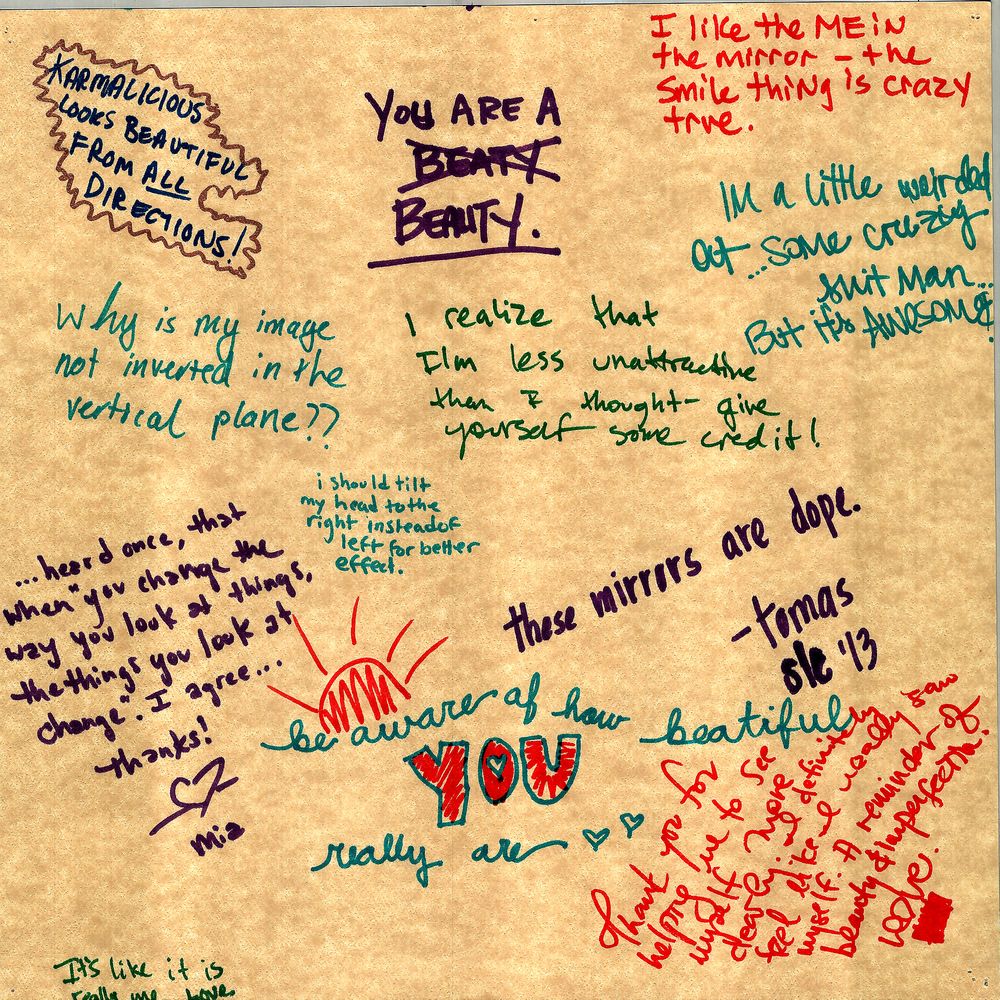 I like the ME in
the mirror – the
smile thing is crazy
true.
KARMALICIOUS
LOOKS BEAUTIFUL
FROM ALL
DIRECTIONS!
YOU ARE A
BEATY
BEAUTY.
IM a little weirded
out ...some creezig
suit man...
But it's AWESOME!
Why is my image
not inverted in the
vertical plane??
I realize that
I'lm less unattractive
than I thought– give
yourself some credit!
i should tilt
my head to the
right instead of
left for better
effect.
...heard once, that
when "you change the
way you look at things,
the things you look at
change". I agree...
thanks!
Mia
these mirrors are dope.
-tomas
slc '13
be aware of how
beatiful
YOU
really are
Thank you for
helping me to see
myself more
clearly and definitely
feel like I usually saw
myself. A reminder of
beauty & imperfection!
LOVE.
It's like it is
really me. Love.